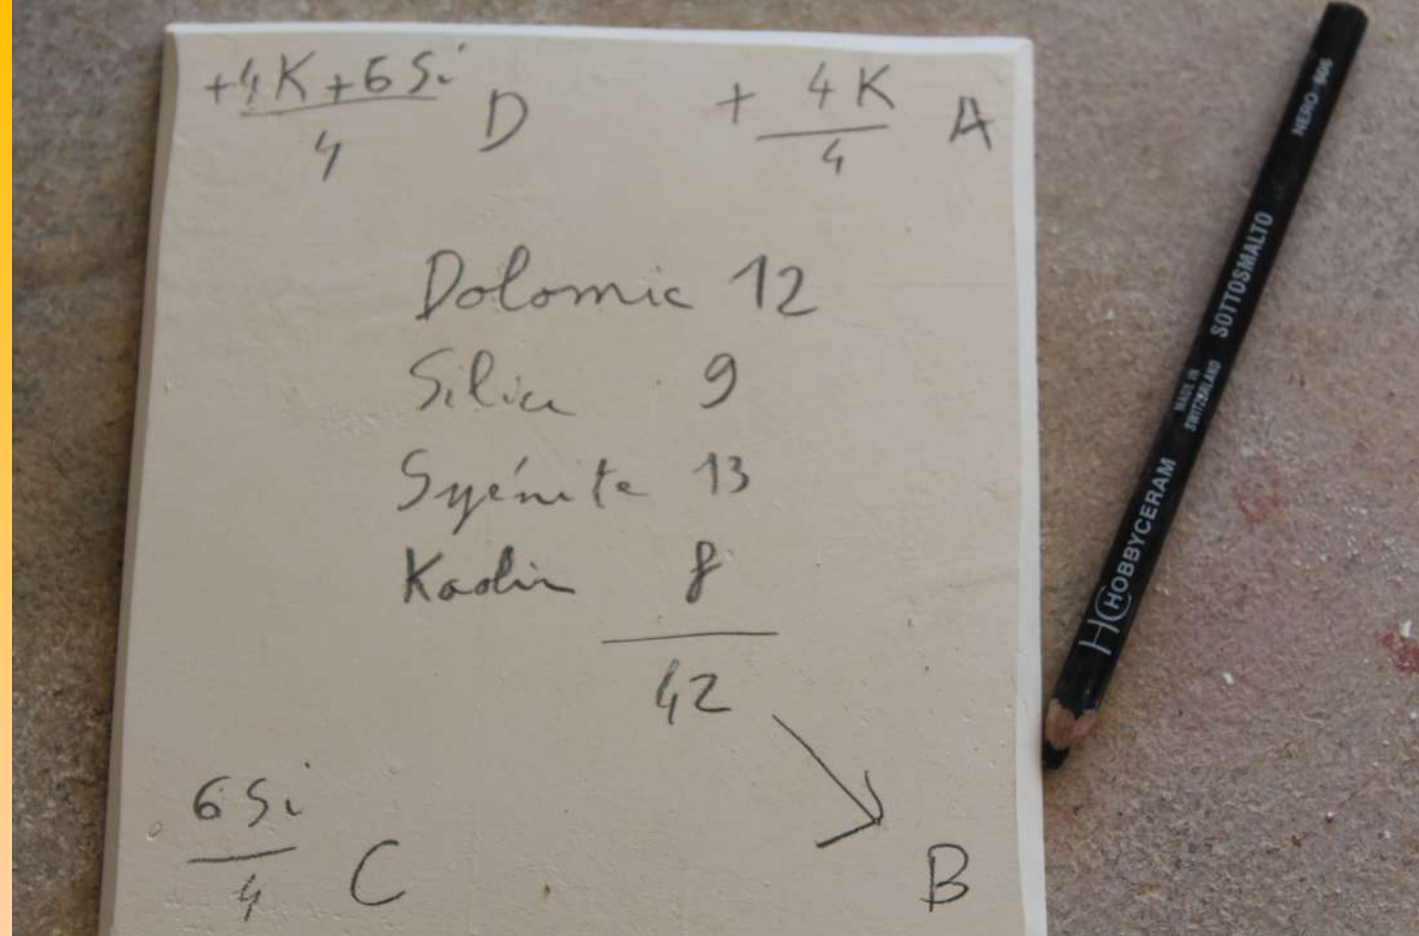 +4K+6Si D
4
+ 4K A
4
Dolomie 12
Silice 9
Syénite 13
Kaolin 8
42
6Si C
4
B
HC HOBBYCERAM MADE IN SWITZERLAND SOTTOSMALTO NERO 606